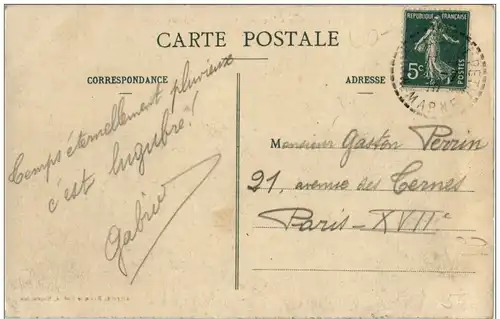 CARTE POSTALE
CORRESPONDANCE
ADRESSE
RÉPUBLIQUE FRANÇAISE
5c
POSTES
MARNE
Temps éternellement pluvieux
c'est lugubre!
Monsieur Gaston Perrin
21, avenue des Ternes
Paris-XVIIe